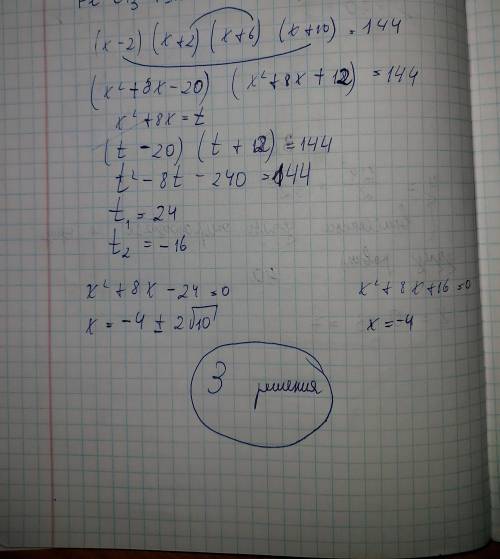 (x-2) (x+2) (x+6) (x+10) = 144
(x²+8x-20) (x²+8x+12) = 144
x²+8x=t
(t-20) (t+12) = 144
t²-8t-240=144
t₁=24
t₂=-16
x²+8x-24=0 x²+8x+16=0
x=-4±2√10 x=-4
3 решения